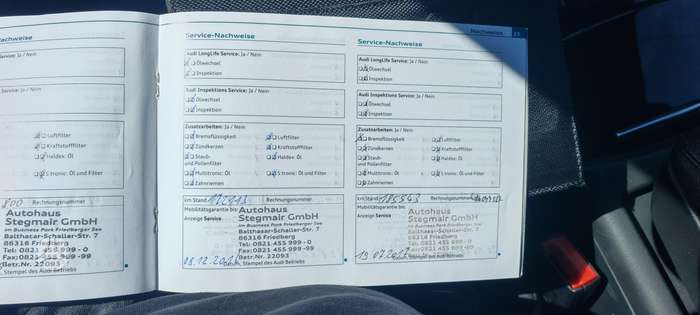 Nachweise
Ja / Nein
Luftfilter
Kraftstofffilter
Haldex: Öl
S tronic: Öl und Filter
800
Rechnungsnummer
Autohaus
Stegmair GmbH
im Business Park Friedberger See
Balthasar-Schaller-Str. 7
86316 Friedberg
Tel: 0821 455 999-0
Fax: 0821 455 999-99
Betr.Nr. 22093
Stempel des Audi Betriebs
Service-Nachweise
Audi LongLife Service: Ja / Nein
Ölwechsel
Inspektion
Audi Inspektions Service: Ja / Nein
Ölwechsel
Inspektion
Zusatzarbeiten: Ja / Nein
Bremsflüssigkeit
Luftfilter
Zündkerzen
Kraftstofffilter
Staub-
und Pollenfilter
Haldex: Öl
Multitronic: Öl
S tronic: Öl und Filter
Zahnriemen
km Stand
Rechnungsnummer
Mobilitätsgarantie bis:
Anzeige Service
Autohaus
Stegmair GmbH
im Business Park Friedberger See
Balthasar-Schaller-Str. 7
86316 Friedberg
Tel: 0821 455 999-0
Fax: 0821 455 999-99
Betr.Nr. 22093
08.12.
Datum, Stempel des Audi Betriebs
Nachweise
Service-Nachweise
Audi LongLife Service: Ja / Nein
Ölwechsel
Inspektion
Audi Inspektions Service: Ja / Nein
Ölwechsel
Inspektion
Zusatzarbeiten: Ja / Nein
Bremsflüssigkeit
Luftfilter
Zündkerzen
Kraftstofffilter
Staub-
und Pollenfilter
Haldex: Öl
Multitronic: Öl
S tronic: Öl und Filter
Zahnriemen
km Stand 185543
Rechnungsnummer
Mobilitätsgarantie bis:
Anzeige Service
Autohaus
Stegmair GmbH
im Business Park Friedberger See
Balthasar-Schaller-Str. 7
86316 Friedberg
Tel: 0821 455 999-0
Fax: 0821 455 999-99
Betr.Nr. 22093
19 07.
Stempel des Audi Betriebs